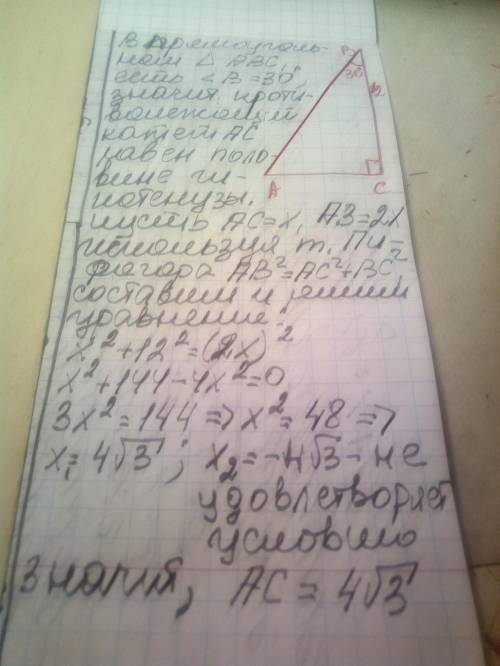 В прямоуголь-
ном △ ABC,
есть ∠B=30°,
значит проти-
волежащий
катет AC
равен поло-
вине ги-
потенузы.
пусть AC=x, AB=2x
используя т. Пи-
фагора AB²=AC²+BC²
составим и решим
уравнение:
x²+12²=(2x)²
x²+144-4x²=0
3x²=144 => x²=48 =>
x₁=4√3; x₂=-4√3 - не
удовлетворяет
условию
Значит, AC = 4√3
B
30°
12
A
C